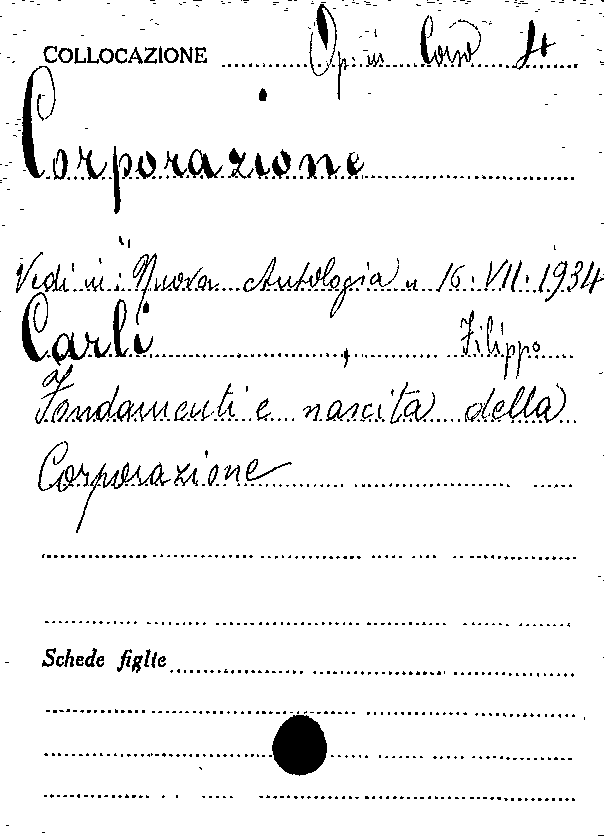 COLLOCAZIONE Op. in Corso 4
Corporazione
Vedi in: "Nuova Antologia" 16. VII. 1934
Carli, Filippo
Fondamenti e nascita della
Corporazione
Schede figlie